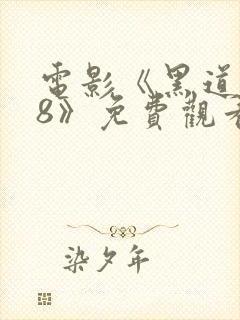 電影《黑道
8》免費觀看
染夕年